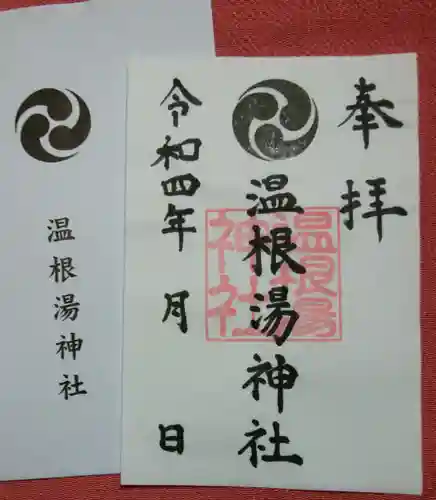 奉拝
温根湯神社
温根湯
神社
令和四年 月 日
温根湯神社